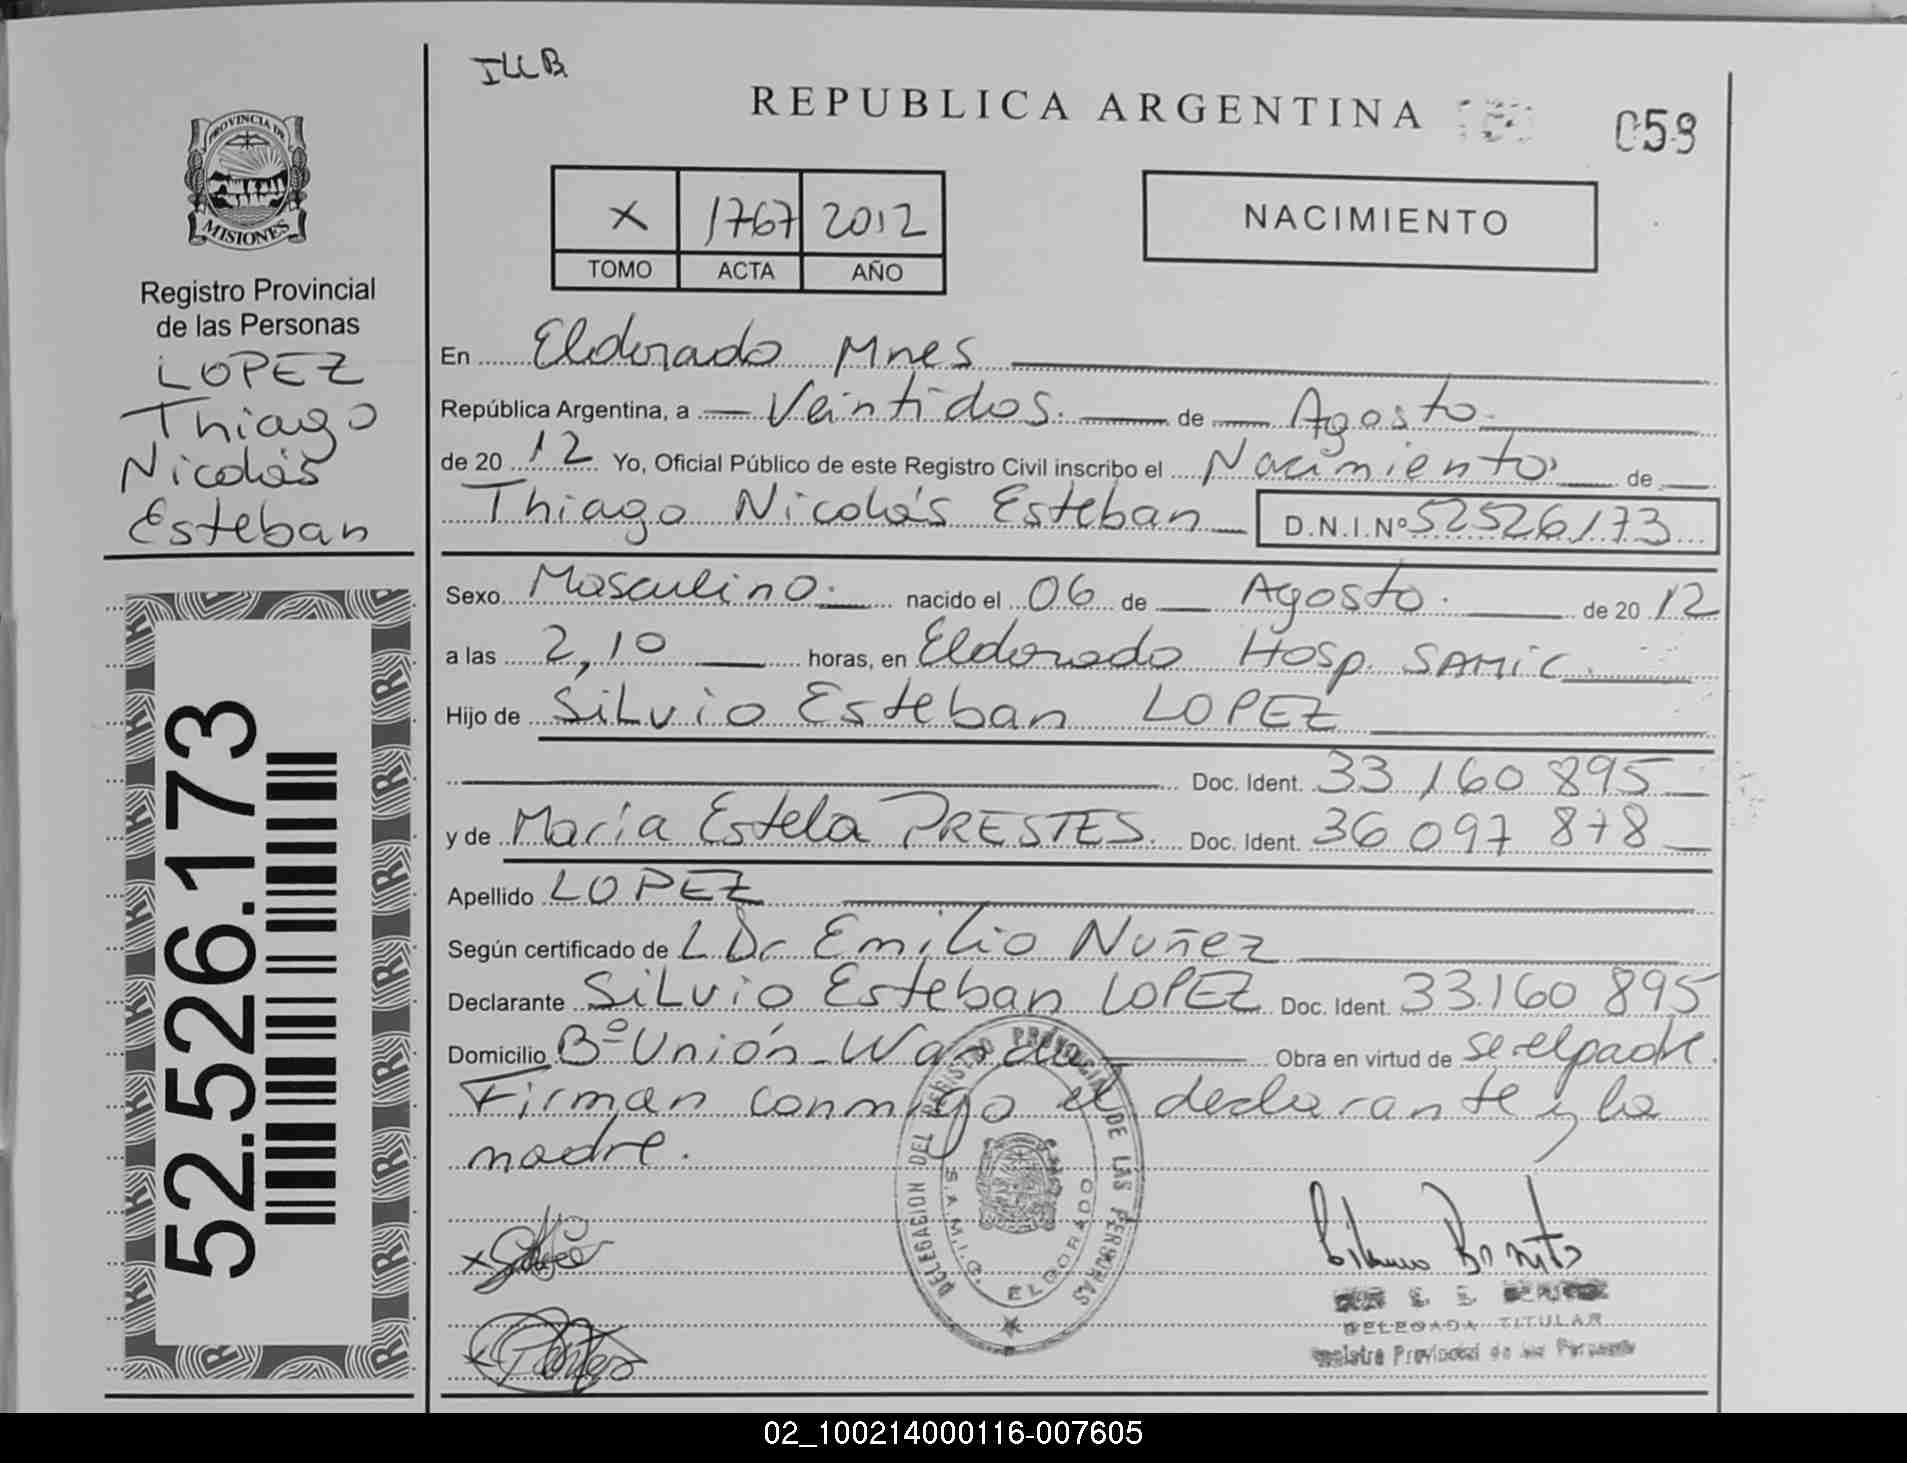 ILLB
REPUBLICA ARGENTINA
059
PROVINCIA DE
MISIONES
Registro Provincial
de las Personas
LOPEZ
Thiago
Nicolás
Esteban
52.526.173
X 1767 2012
TOMO ACTA AÑO
NACIMIENTO
En Eldorado Mnes
República Argentina, a Veintidos. de Agosto.
de 20 12 Yo, Oficial Público de este Registro Civil inscribo el Nacimiento de
Thiago Nicolás Esteban D.N.I.Nº 52526173
Sexo Masculino. nacido el 06 de Agosto. de 20 12
a las 2,10 horas, en Eldorado Hosp. SAMIC.
Hijo de Silvio Esteban LOPEZ
Doc. Ident. 33 160 895
y de María Estela PRESTES. Doc. Ident. 36 097 878
Apellido LOPEZ
Según certificado de L Dr Emilio Nuñez
Declarante Silvio Esteban LOPEZ Doc. Ident. 33.160 895
Domicilio Bº Unión - Wanda Obra en virtud de se el padre.
Firman conmigo el declarante y la
madre.
DELEGACION DEL REGISTRO PROVINCIAL DE LAS PERSONAS
S.A.M.I.C. ELDORADO
DELEGADA TITULAR
Registro Provincial de las Personas
02_100214000116-007605